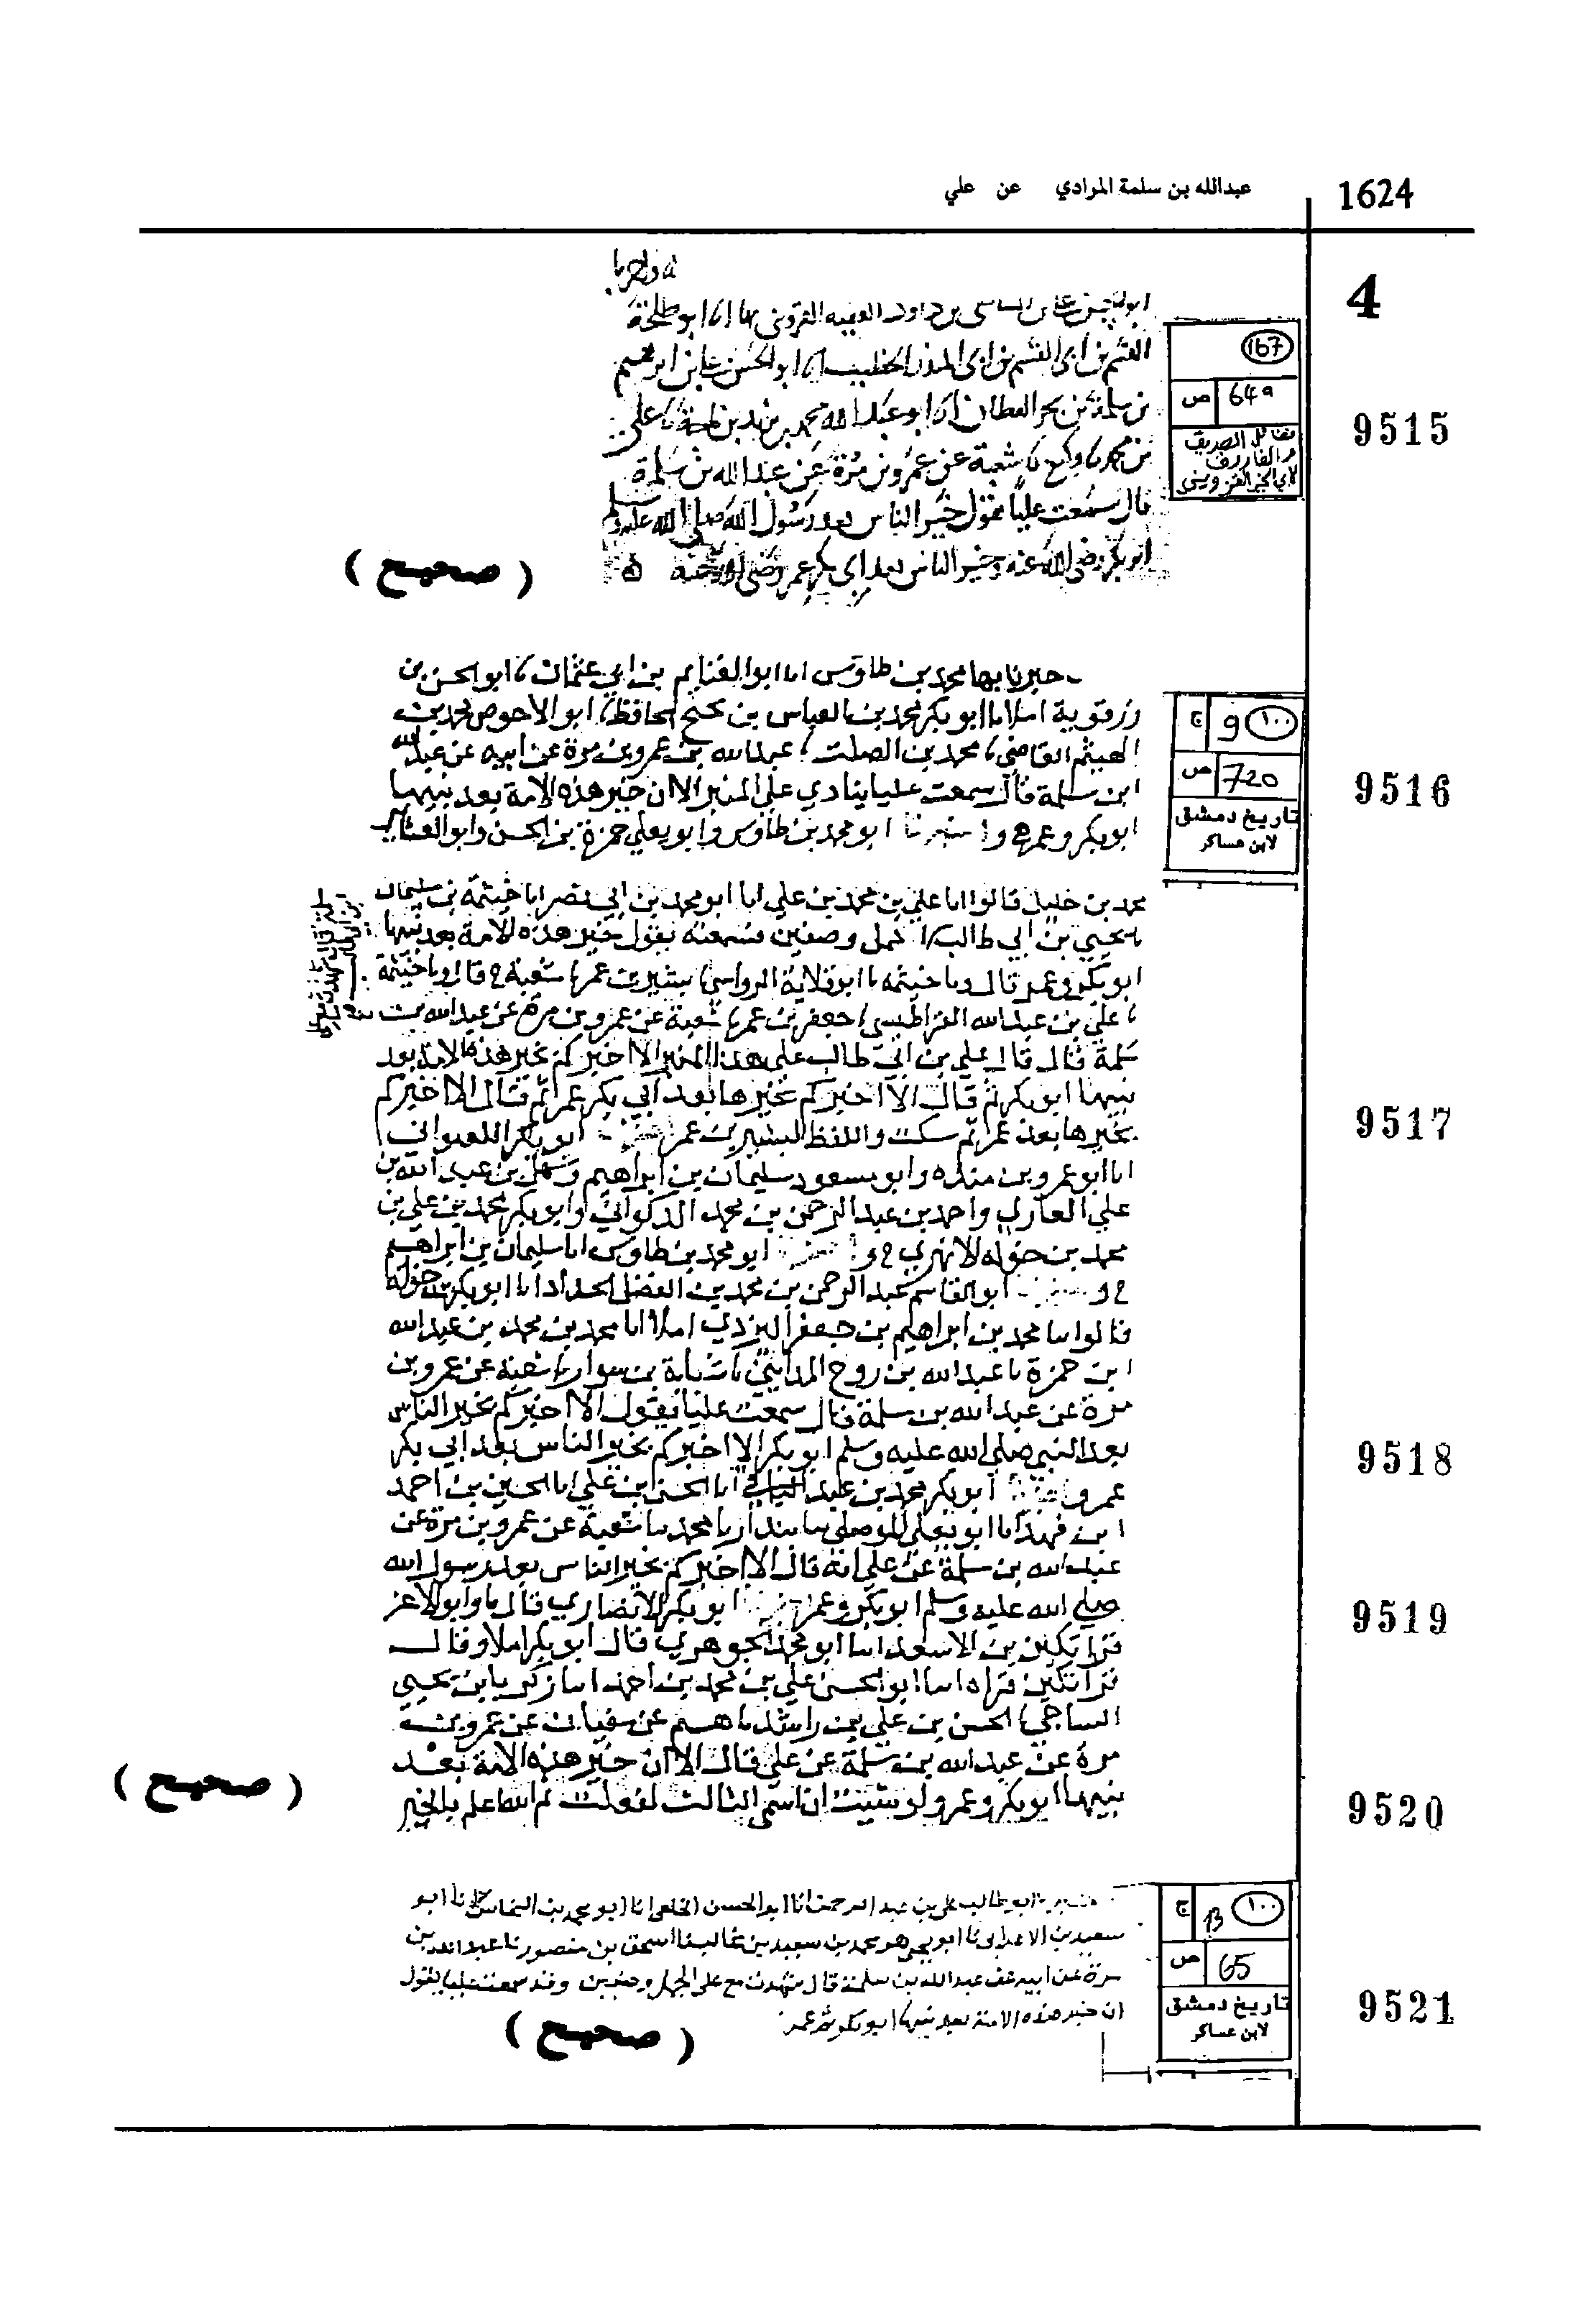 1624
عبدالله بن سلمة المرادي عن علي
4
واخبرنا
167
القسم بن ابي القسم بن ابي المنذر الخطيب انا ابو الحسن علي بن ابرهيم
649 ص
بن سلمة بن بحر القطان انا ابو عبد الله محمد بن يزيد بن ماجة نا علي
9515
فضائل الصديق
والفاروق
لابي الخير القزويني
بن محمد نا وكيع نا شعبة عن عمرو بن مرة عن عبد الله بن سلمة
قال سمعت عليا يقول خير الناس بعد رسول الله صلى الله عليه وسلم
ابو بكر رضى الله عنه وخير الناس بعد ابي بكر عمر رضى الله عنه
( صحيح )
خبرنا بها محمد بن طاوس انا ابو الغنايم بن ابي عثمان نا ابو الحسن بن
رزقوية املا نا ابو بكر محمد بن العباس بن نجيح الحافظ نا ابو الاحوص محمد بن
١٠٠ 9 ج
الهيثم القاضي نا محمد بن الصلت نا عبد الله بن عمرو بن مرة عن ابيه عن عبد الله
720 ص
ابن سلمة قال سمعت عليا ينادي على المنبر الا ان خير هذه الامة بعد نبيها
9516
تاريخ دمشق
لابن عساكر
ابو بكر وعمر ح وا ابو محمد بن طاوس وابو يعلي حمزة بن الحسن وابو العشاير
محمد بن خليل قالوا انا علي بن محمد بن علي انا ابو محمد بن ابي نصر انا خيثمة بن سليمان
بن ابي طالب وصفين فسمعته يقول خير هذه الامة بعد نبيها
ابو بكر وعمر قال ونا خيثمه نا ابو قلابة الرواسي نا بشير بن عمر نا شعبة ح قال ونا خيثمة
نا علي بن عبد الله جعفر بن عمر نا شعبة عن عمرو بن مرة عن عبد الله بن
سلمة قال قال علي بن ابي طالب على هذا المنبر الا اخبركم بخير هذه الامة بعد
نبيها ابو بكر ثم قال الا اخبركم بخيرها بعد ابي بكر عمر ثم قال الا اخبركم
9517
بخيرها بعد عمر ثم سكت واللفظ لبشير بن عمر ابو بكر اللفتواني
انا ابو عمرو بن منده وابو مسعود سليمان بن ابراهيم وسهل بن عبد الله بن
علي واحمد بن عبد الرحمن بن محمد الذكواني وابو بكر محمد بن علي بن
محمد بن جوله الابهري ح وا ابو محمد بن طاوس انا سليمان بن ابراهيم
ح و ابو القاسم عبد الرحمن بن محمد بن الفضل الحداد انا ابو بكر بن جوله
قالوا نا محمد بن ابراهيم بن جعفر اليزدي املا انا محمد بن محمد بن عبد الله
ابن حمزة نا عبد الله بن روح المدايني نا شبابة بن سوار نا شعبة عن عمرو بن
مرة عن عبد الله بن سلمة قال سمعت عليا يقول الا اخبركم بخير الناس
9518
بعد النبي صلى الله عليه وسلم ابو بكر الا اخبركم بخير الناس بعد ابي بكر
عمر وا ابو بكر محمد بن عبد الباقي انا الحسن بن علي انا الحسين بن احمد
ابن فهد نا ابو يعلي الموصلي نا بندار نا محمد نا شعبة عن عمرو بن مرة عن
عبد الله بن سلمة عن علي انه قال الا اخبركم بخير الناس بعد رسول الله
9519
صلى الله عليه وسلم ابو بكر وعمر ابو بكر الانصاري قال نا وابو الاعز
قراتكين بن الاسعد انا ابو محمد الجوهري قال ابو بكر املا وقال
قراتكين قراة انا ابو الحسن علي بن محمد بن احمد انا زكريا بن يحيي
الساجي نا الحسن بن علي بن راشد نا هشيم عن سفيان عن عمرو بن
مرة عن عبد الله بن سلمة عن علي قال الا ان خير هذه الامة بعد
( صحيح )
9520
نبيها ابو بكر وعمر ولو شئت ان اسمي الثالث لفعلت ثم الله اعلم بالخير
ابو طالب علي بن عبد الرحمن انا ابو الحسن الخلعي انا ابو محمد بن النحاس انا ابو
١٠٠ 13 ج
سعيد بن الاعرابي نا ابو يحيى هو محمد بن سعيد بن غالب نا اسحق بن منصور نا عبد الله بن
65 ص
مرة عن ابيه عن عبد الله بن سلمة قال شهدت مع علي الجمل وصفين وقد سمعت عليا يقول
9521
تاريخ دمشق
لابن عساكر
ان خير هذه الامة بعد نبيها ابو بكر ثم عمر
( صحيح )